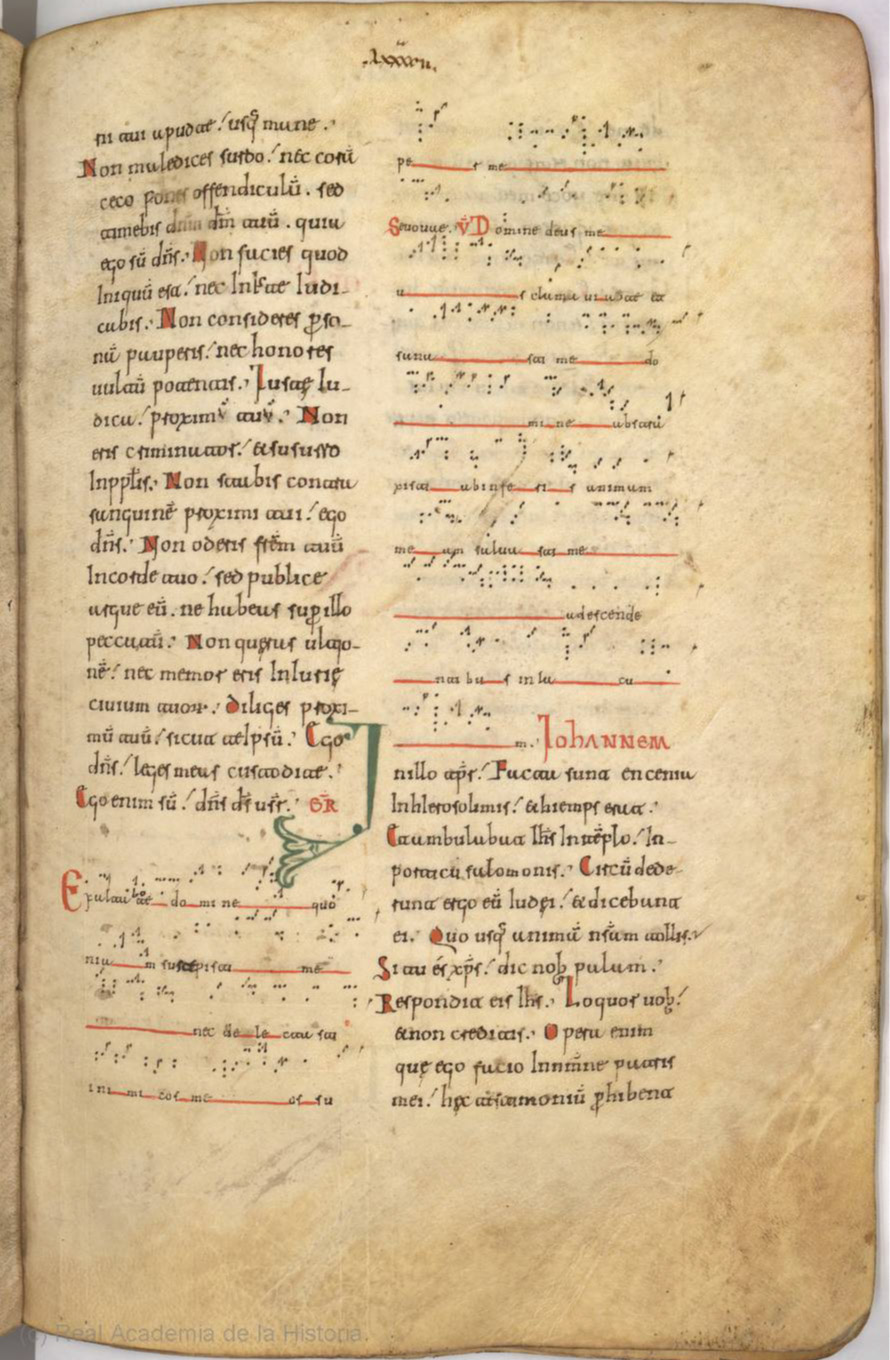 lxxxvii.
ni tui apud te usq; mane.
Non maledices surdo. nec coram
ceco pones offendiculū. sed
timebis dn̄m dm̄ tuū. quia
ego sū dn̄s. Non facies quod
Iniquū est. nec Iniuste Iudi-
cabis. Non consideres p̱so-
nā pauperis. nec honores
uultū potentis. Iuste Iu-
dica proximo tuo. Non
eris criminator. & susurro
In pp̄lis. Non stabis contra
sanguinē proximi tui. ego
dn̄s. Non oderis fr̄em tuū
In corde tuo. sed publice
argue eū. ne habeas sup̱ illo
peccatū. Non queras ultio-
nē. nec memor eris Iniurię
ciuium tuor. Diliges proxi-
mū tuū. sicut te ipsū. Ego
dn̄s. leges meas custodite.
Ego enim sū dn̄s ds̄ ur̄. GR
Exaltabo te domine quo
niam suscepisti me
nec delectasti
inimicos meos su
per me
Seuouae. V̄ Domine deus me
us clamaui ad te et
sanasti me do
mine abstra
xisti ab inferis animam
meam saluasti me
a descende
ntibus in lacu
m. IOHANNEM
In illo tp̄r. Facta sunt encenia
In hierosolimis. & hiemps erat.
Et ambulabat ih̄s In tēplo. In
porticu salomonis. Circūdede-
runt ergo eū Iudęi. & dicebant
ei. Quo usq; animā nr̄am tollis.
Si tu és xp̄s. dic nob palam.
Respondit eis ih̄s. Loquor uob.
& non creditis. Opera enim
quę ego facio In nōīne patris
mei. hęc testimoniū p̱hibent